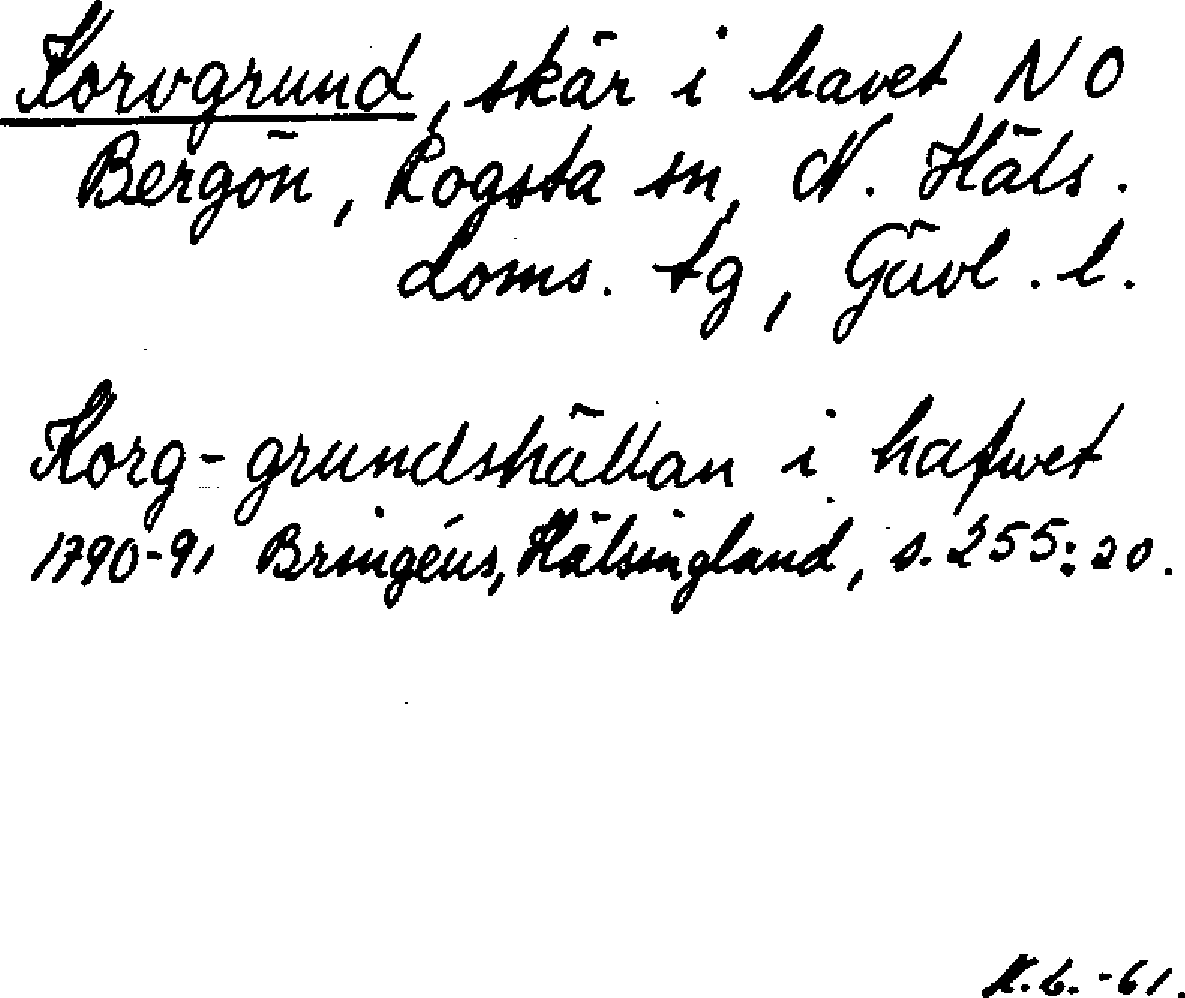 Korvgrund, skär i havet NO
Bergön, Rogsta sn, N. Häls.
doms. tg, Gävl. l.
Korg-grundshällan i hafwet
1790-91 Bringéus, Hälsingland, s. 255:20.
K.L.-61.